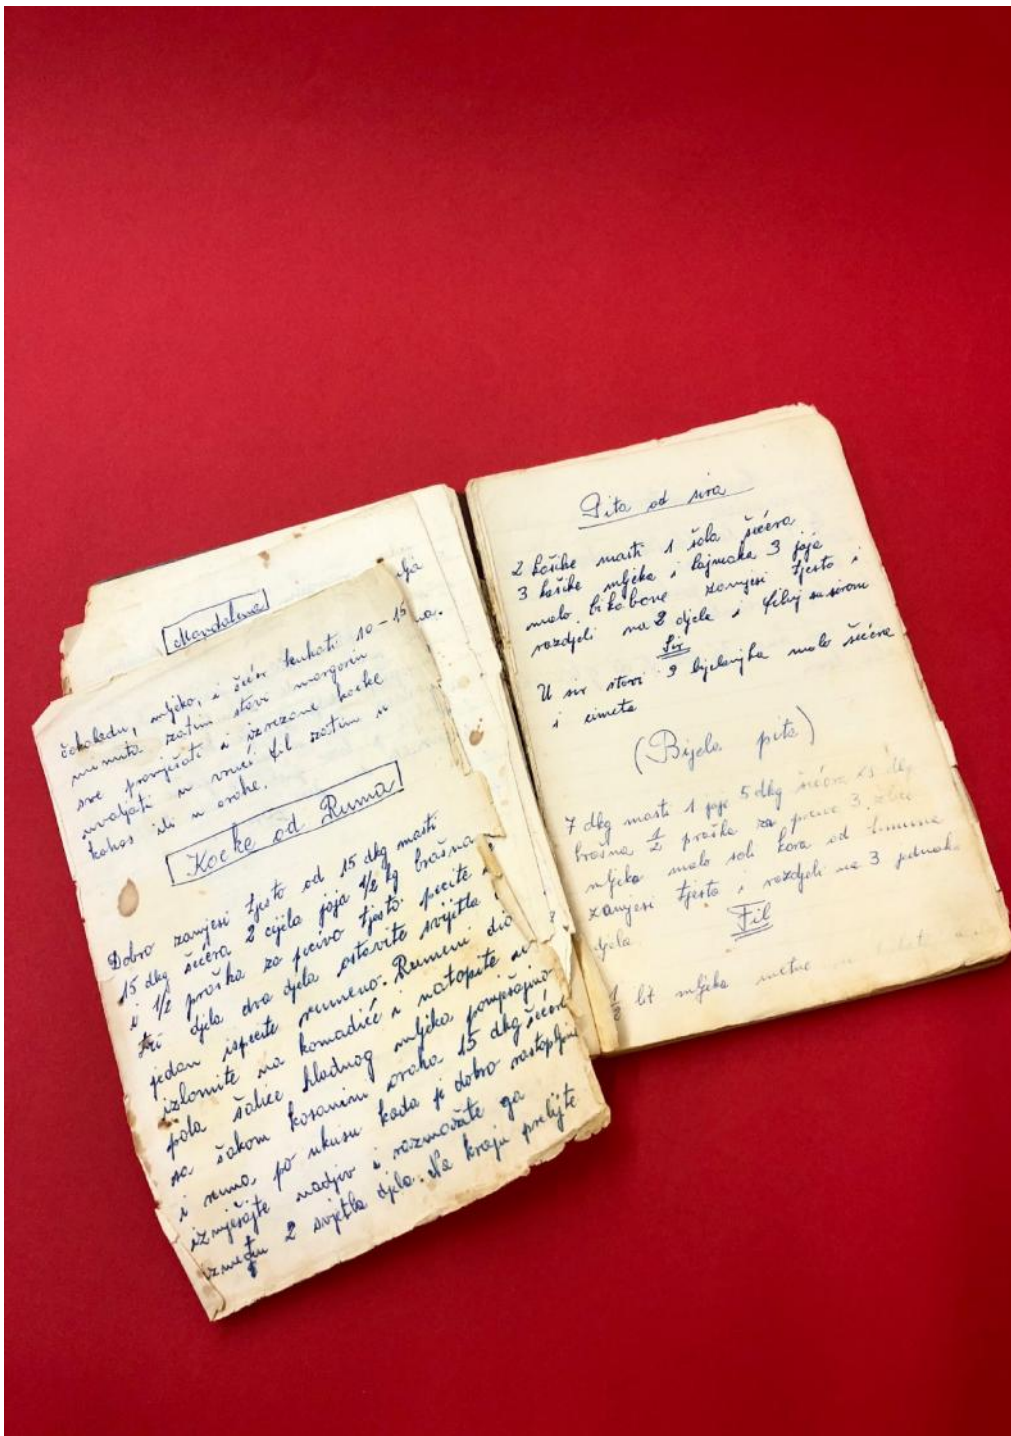 Mandolina
čokoladu, mljeko, i šećer kuhati 10-15
minuta zatim stavi margarin
sve promješati i izrezane kocke
uvaljati u vrući fil zatim u
kokos ili u orahe.
Kocke od Ruma
Dobro zamjesi tjesto od 15 dkg masti
15 dkg šećera 2 cijela jaja 1/2 kg brašna
i 1/2 praška za pecivo tjesto pecite u
tri djela dva djela ostavite svijetla
jedan ispecite rumeno. Rumeni dio
izlomite na komadiće i natopite sa
pola šalice hladnog mljeka pomješajmo
sa šakom kosanini oraha 15 dkg šećera
i ruma, po ukusu kada je dobro rastopljeno
izmješajte nadjev i razmažite ga
između 2 svjetla djela. Na kraju prelijte
Pita od sira
2 kašike masti 1 šola šećera
3 kašike mljeka i kajmaka 3 jaja
malo bikabone zamjesi tjesto i
razdjeli na 2 djela i filuj sa sirom
Sir
U sir stavi 3 bjelanjka malo šećera
i cimeta
(Bijela pita)
7 dkg masti 1 jaje 5 dkg šećera 25 dkg
brašna 1/2 praška za pecivo 3 žlice
mljeka malo soli kora od limuna
zamjesi tjesto i razdjeli na 3 jednaka
djela
Fil
1/2 lit mljeka metne